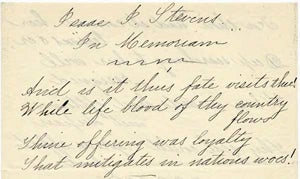 Isaac I. Stevens
In Memoriam
And is it thus fate visits thee!
While life blood of thy country
flows
Thine offering was loyalty
That mitigates in nations woes!